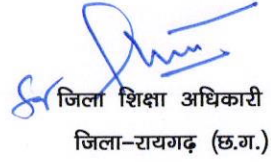 जिला शिक्षा अधिकारी
जिला–रायगढ़ (छ.ग.)